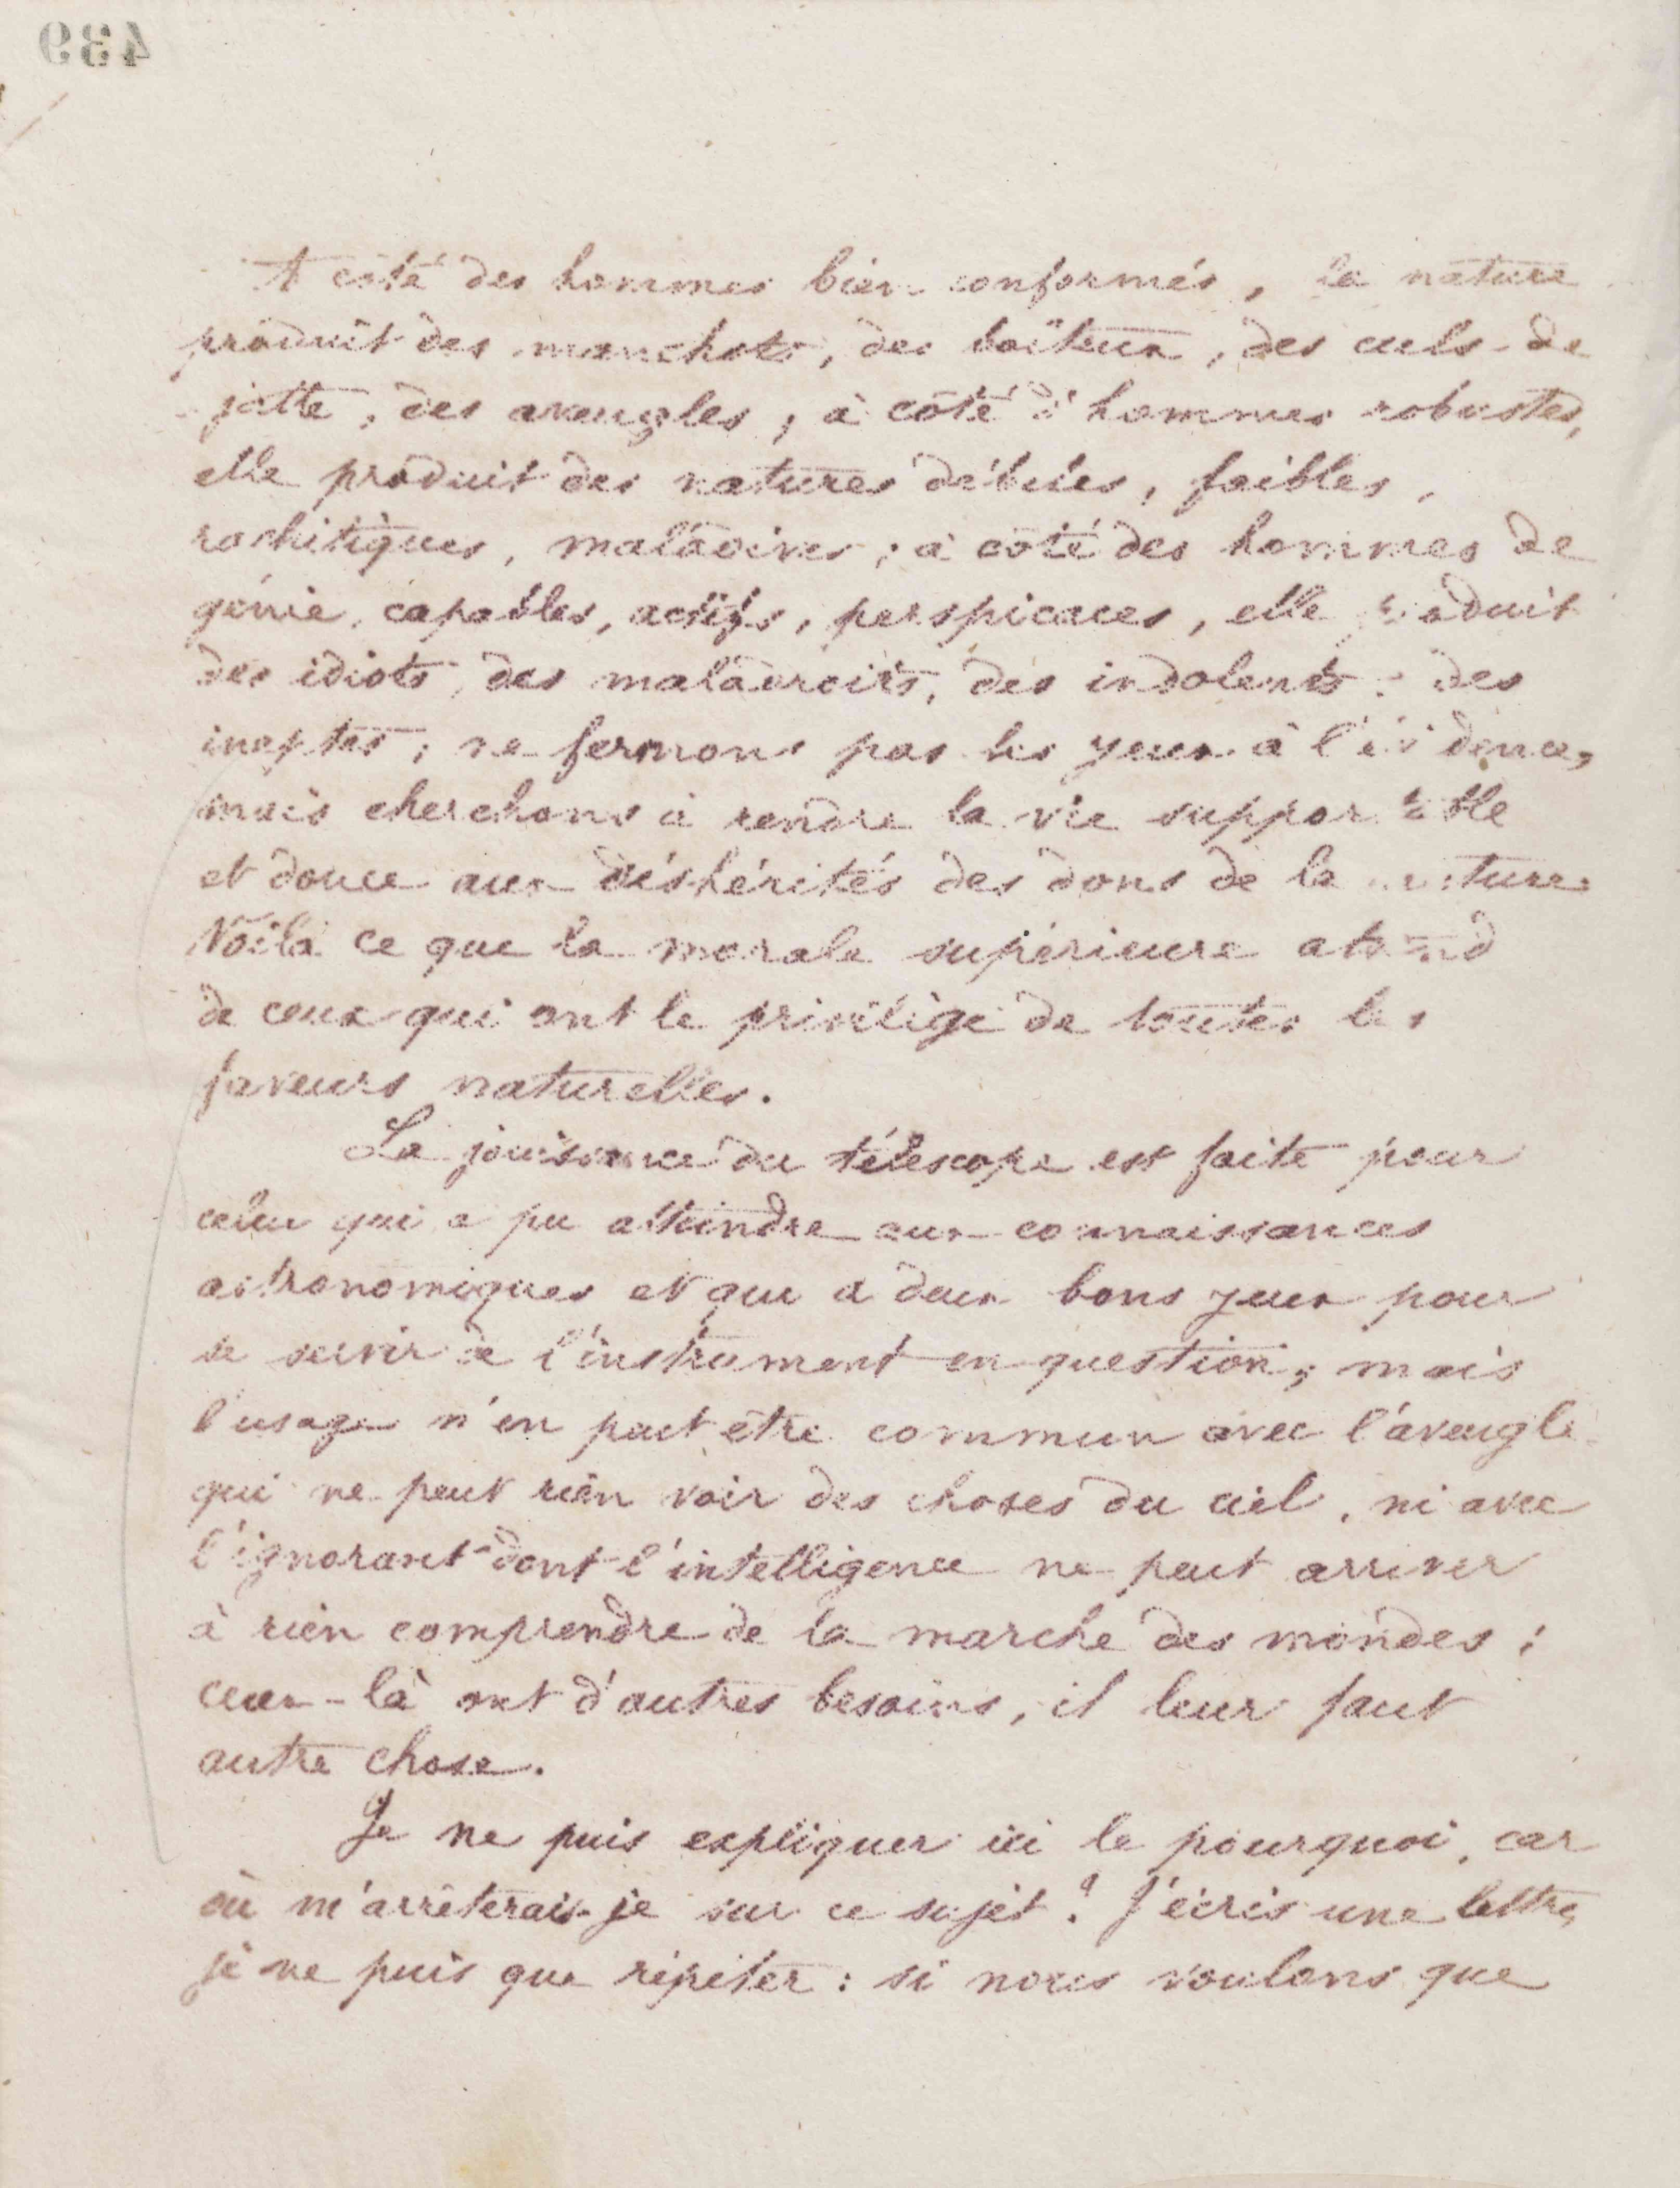 439
A côté des hommes bien conformés, la nature
produit des manchots, des boiteux, des culs-de
jatte, des aveugles ; à côté d'hommes robustes,
elle produit des natures débiles, faibles,
rachitiques, maladives ; à côté des hommes de
génie, capables, actifs, perspicaces, elle produit
des idiots, des maladroits, des indolents, des
ineptes ; ne fermons pas les yeux à l'évidence,
mais cherchons à rendre la vie supportable
et douce aux déshérités des dons de la nature.
Voilà ce que la morale supérieure attend
de ceux qui ont le privilège de toutes les
faveurs naturelles.
La jouissance du télescope est faite pour
celui qui a pu atteindre aux connaissances
astronomiques et qui a deux bons yeux pour
se servir de l'instrument en question ; mais
l'usage n'en peut être commun avec l'aveugle
qui ne peut rien voir des choses du ciel, ni avec
l'ignorant dont l'intelligence ne peut arriver
à rien comprendre de la marche des mondes ;
ceux-là ont d'autres besoins, il leur faut
autre chose.
Je ne puis expliquer ici le pourquoi, car
où m'arrêterais-je sur ce sujet ? J'écris une lettre,
je ne puis que répéter : si nous voulons que